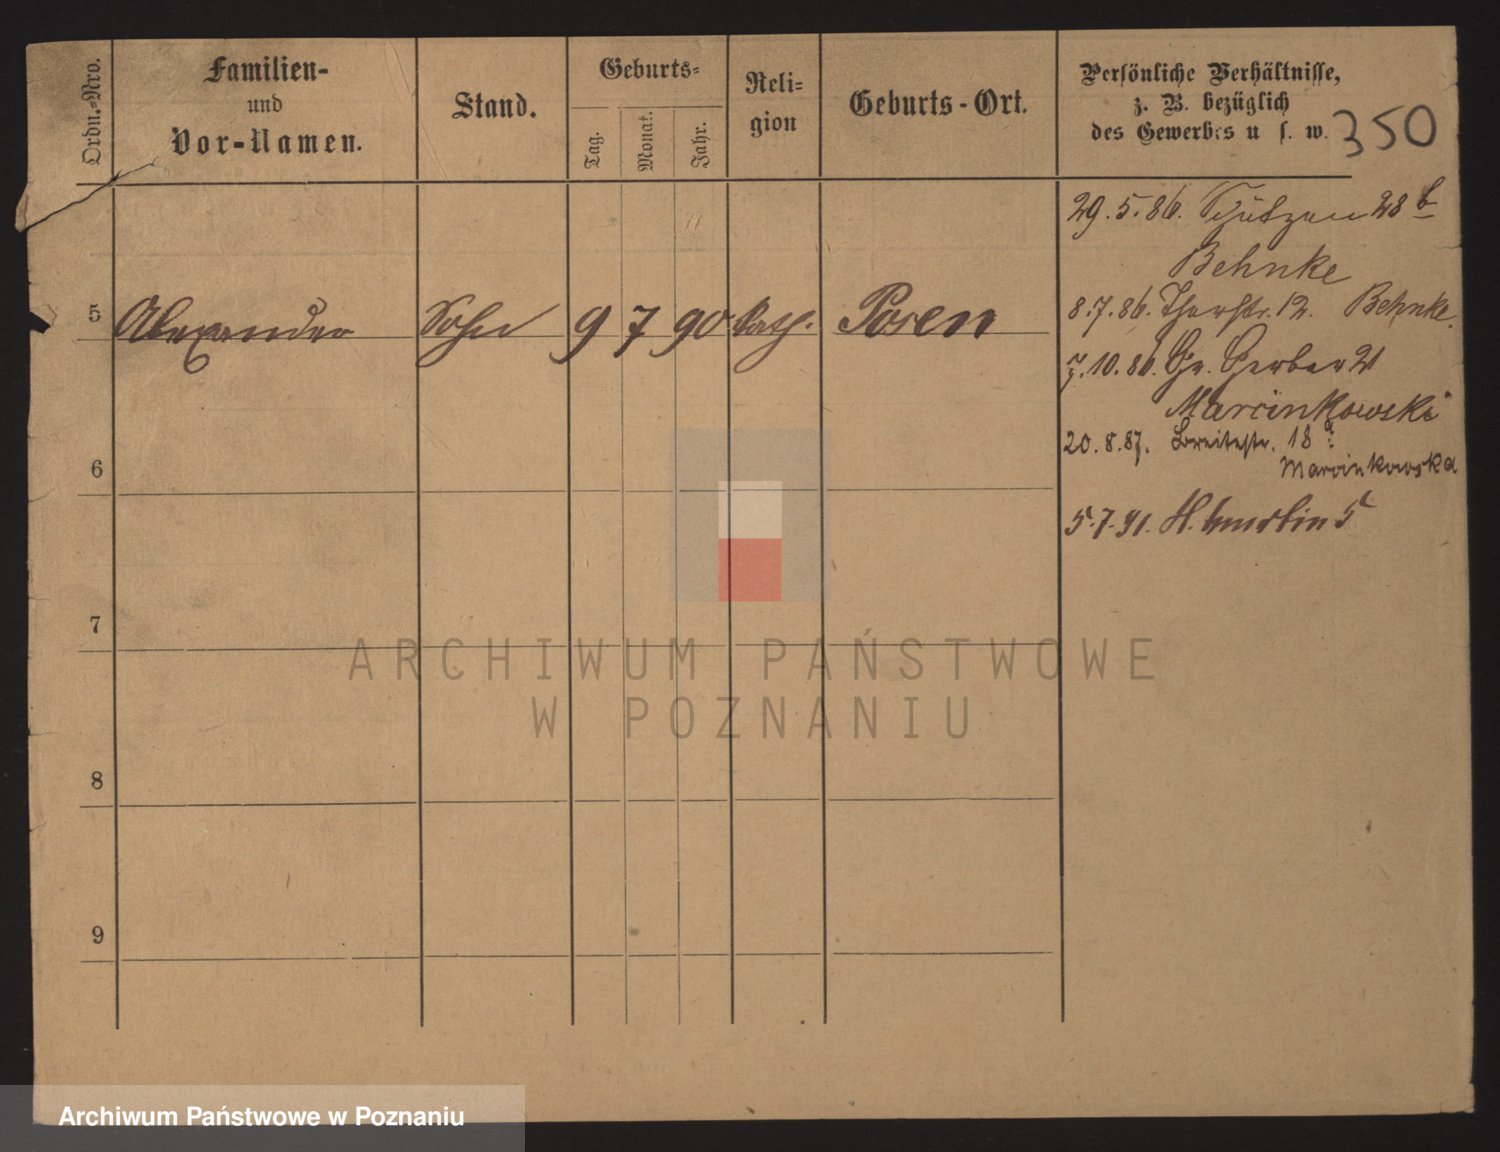 Ordn.-Nro.
Familien-
und
Vor-Namen.
Stand.
Geburts-
Tag.
Monat.
Jahr.
Reli-
gion
Geburts-Ort.
Persönliche Verhältnisse,
z. B. bezüglich
des Gewerbes u s. w.
350
29.5.86. Schützen 28 b
Behnke
8.7.86. Thorstr. 12. Behnke.
5 Alexander Sohn 9 7 90 kath. Posen
7.10.86. Gr. Gerber 21
Marcinkowski
20.8.87. Breitestr. 18
Marcinkowska
6
5.7.91. H. 5
7
8
9
ARCHIWUM PAŃSTWOWE
W POZNANIU
Archiwum Państwowe w Poznaniu